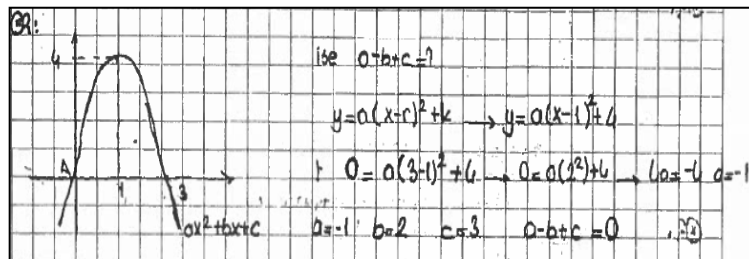 ÖR:
4
A
1
3
ax²+bx+c
ise a-b+c=?
y=a(x-r)²+k → y=a(x-1)²+4
0=a(3-1)²+4 → 0=a(2²)+4 → 4a=-4 a=-1
a=-1 b=2 c=3 a-b+c=0